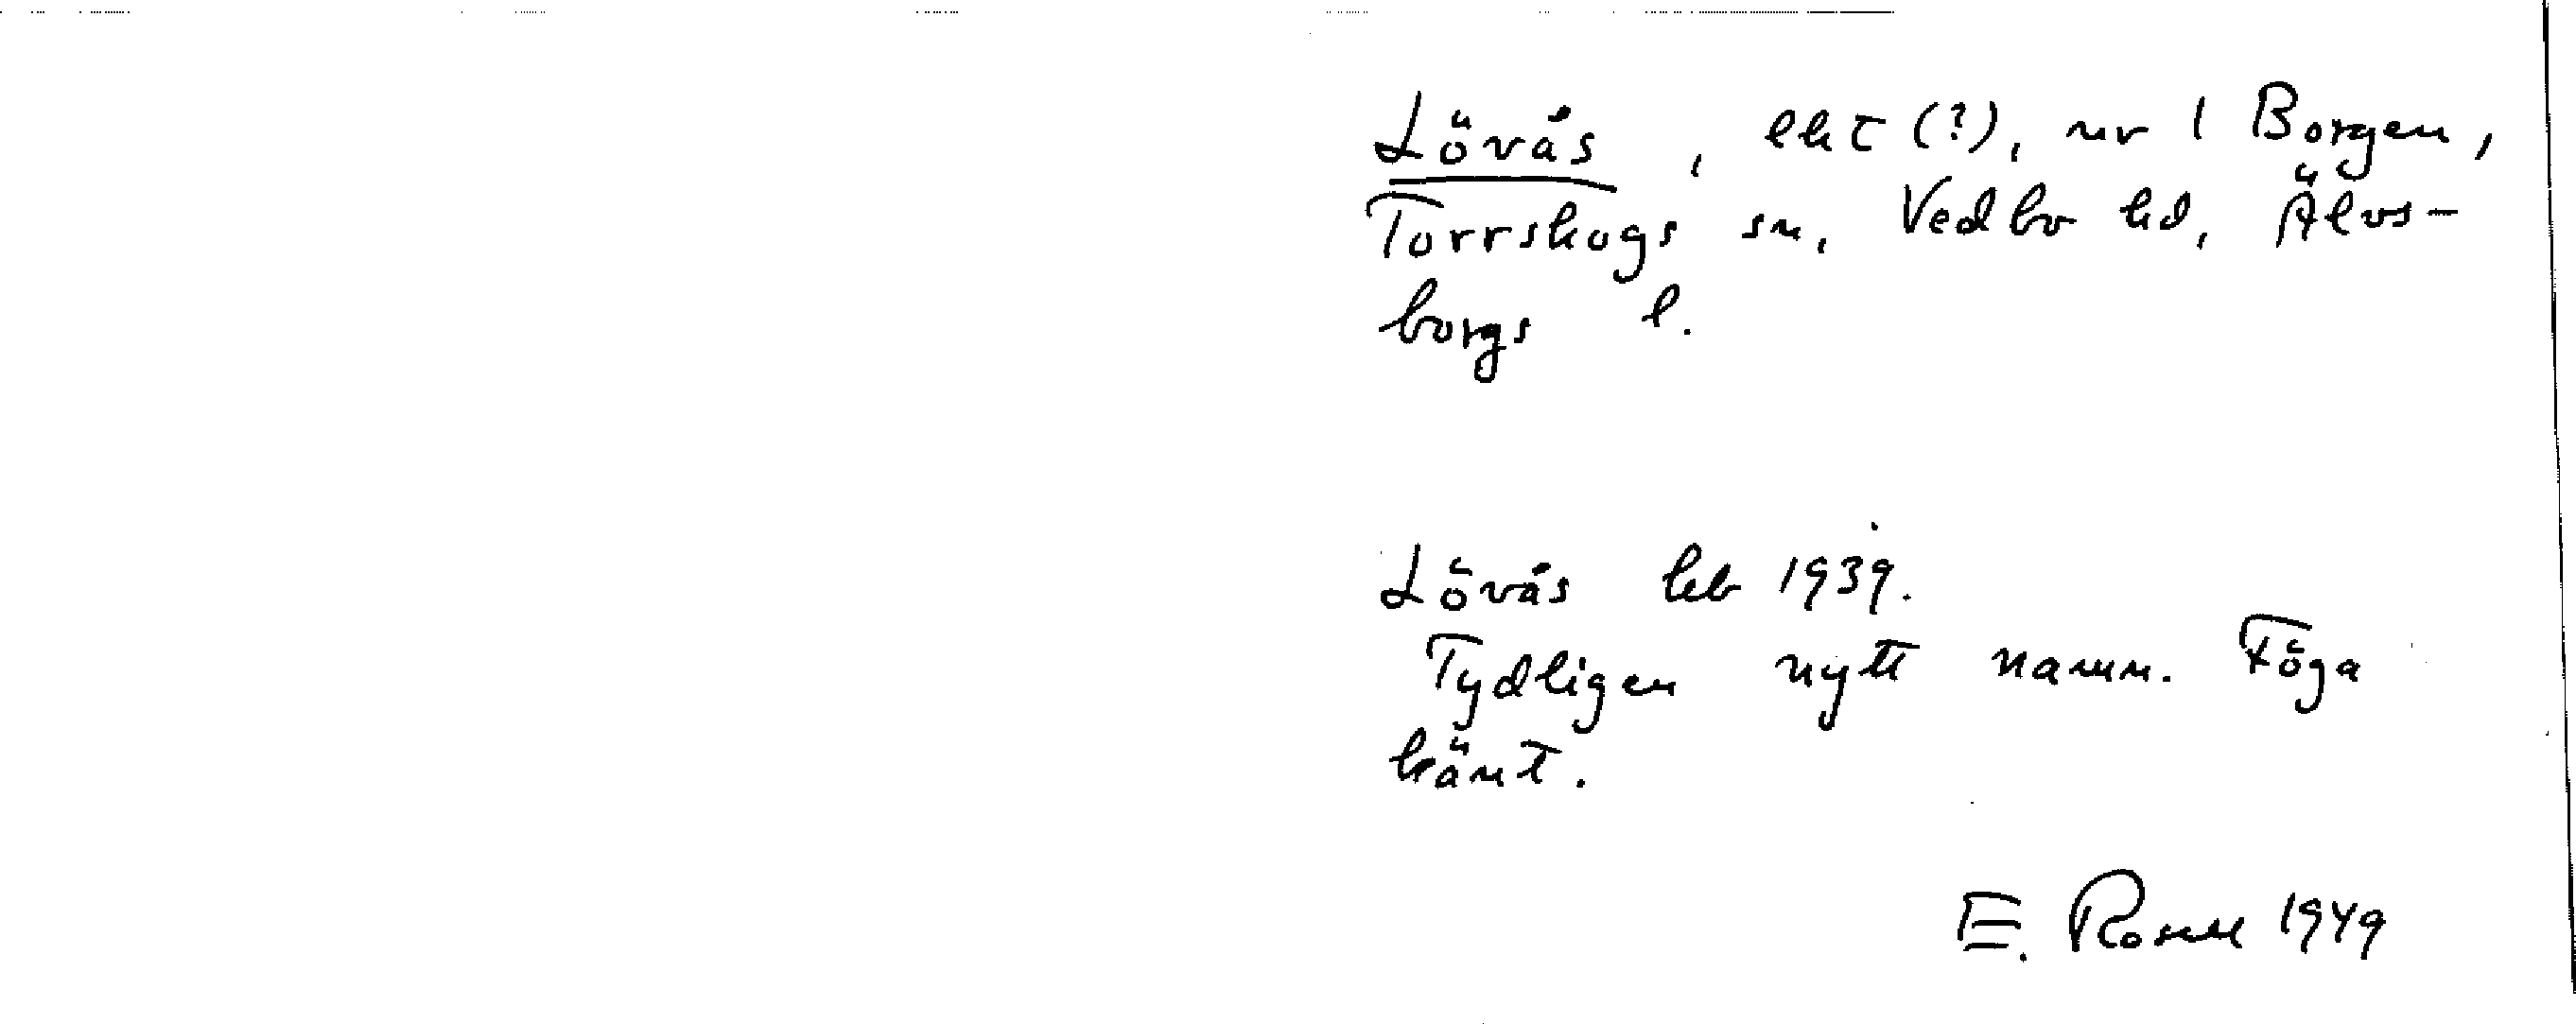 Lövås, lht (?), nr 1 Borgen,
Torrskogs sn, Vedbo hd, Älvs-
borgs l.
Lövås leb 1939.
Tydligen nytt namn. Föga
känt.
E. Rosell 1949